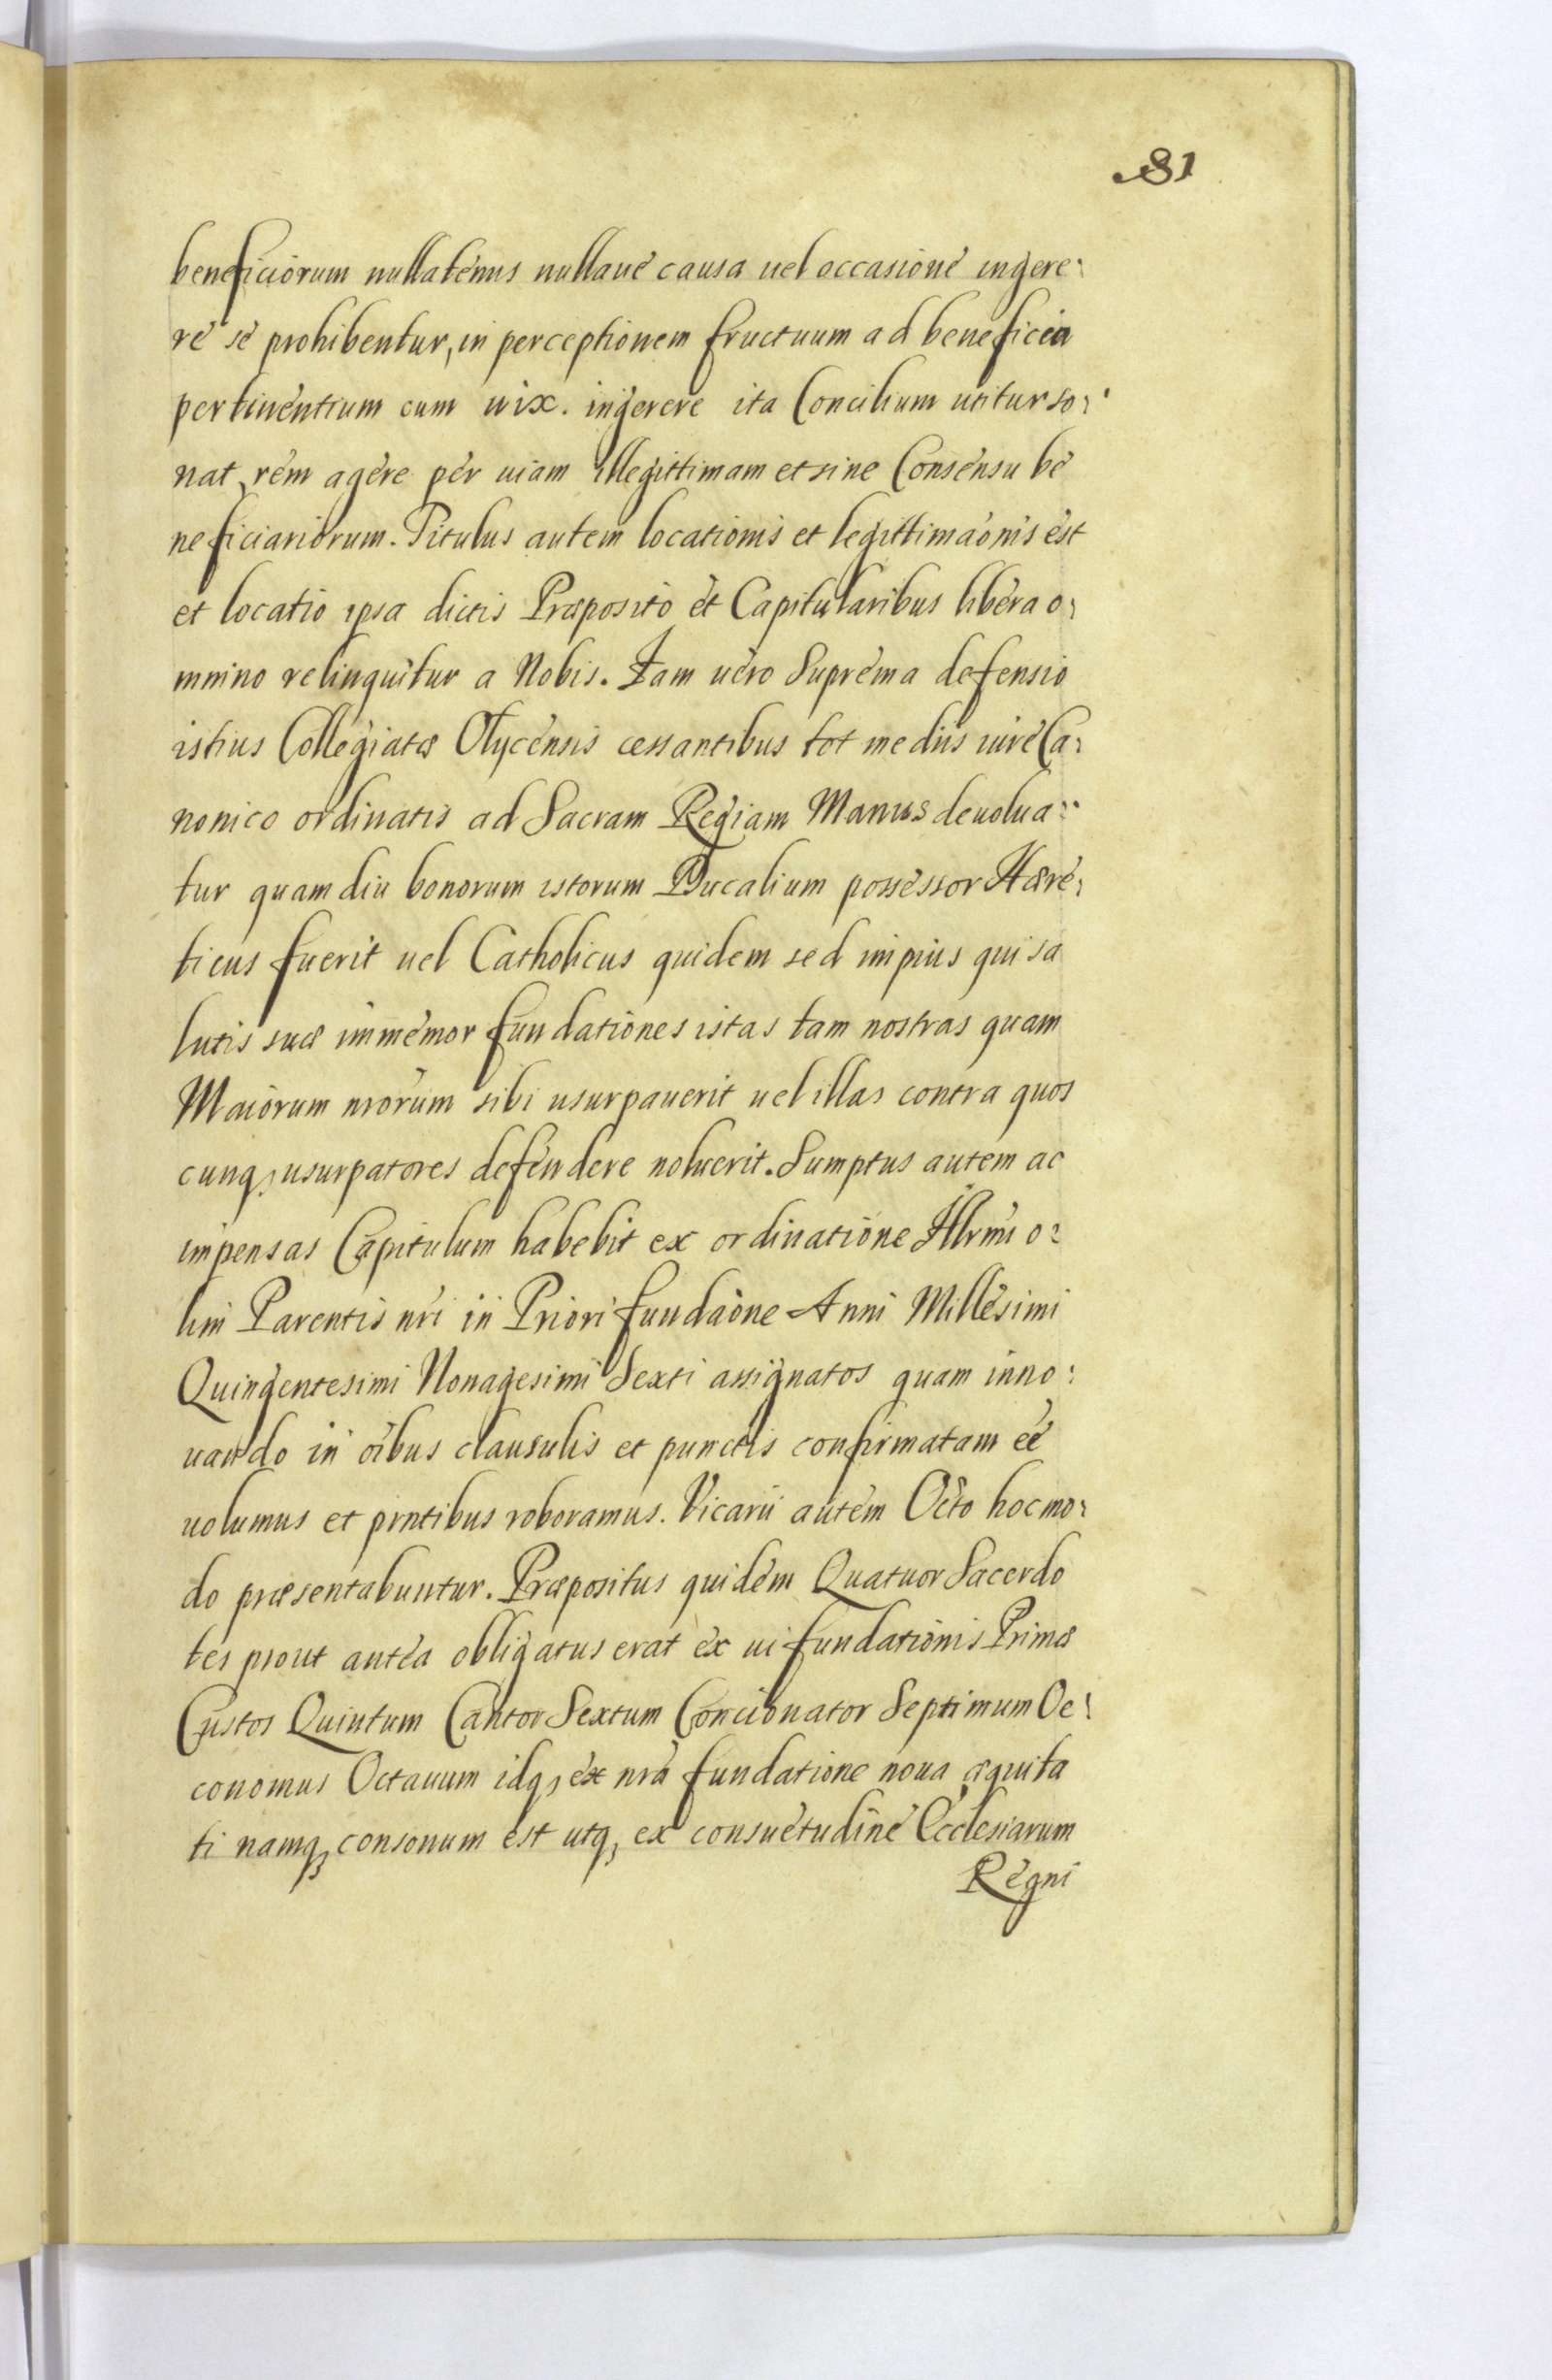 81
beneficiorum nullatenus nullaue causa uel occasione ingere:
re se prohibentur, in perceptionem fructuum ad beneficia
pertinentium cum uix. ingerere ita Concilium utitur so:
nat, rem agere per uiam illegittimam et sine Consensu be
neficiariorum. Titulus autem locationis et legittimaõnis est
et locatio ipsa dictis Præposito et Capitularibus libera o:
mnino relinquitur a Nobis. Iam uero Suprema defensio
istius Collegiatæ Olycensis cessantibus tot mediis iure Ca:
nonico ordinatis ad Sacram Regiam Manus deuolua:
tur quam diu bonorum istorum Ducalium possessor Hære:
ticus fuerit uel Catholicus quidem sed impius qui sa
lutis suæ immemor fundationes istas tam nostras quam
Maiorum nrõrum sibi usurpauerit uel illas contra quos
cunq, usurpatores defendere noluerit. Sumptus autem ac
impensas Capitulum habebit ex ordinatione Illrmi o:
lim Parentis nri in Priori fundaõne Anni Millesimi
Quingentesimi Nonagesimi Sexti assignatos quam inno:
uando in oĩbus clausulis et punctis confirmatam eẽ
uolumus et prntibus roboramus. Vicarii autem Octo hoc mo:
do præsentabuntur. Præpositus quidem Quatuor Sacerdo
tes prout antea obligatus erat ex ui fundationis Primæ
Custos Quintum Cantor Sextum Concionator Septimum Oe:
conomus Octauum idq, ex nrã fundatione noua æquita
ti namq, consonum est utq, ex consuetudine Ecclesiarum
Regni